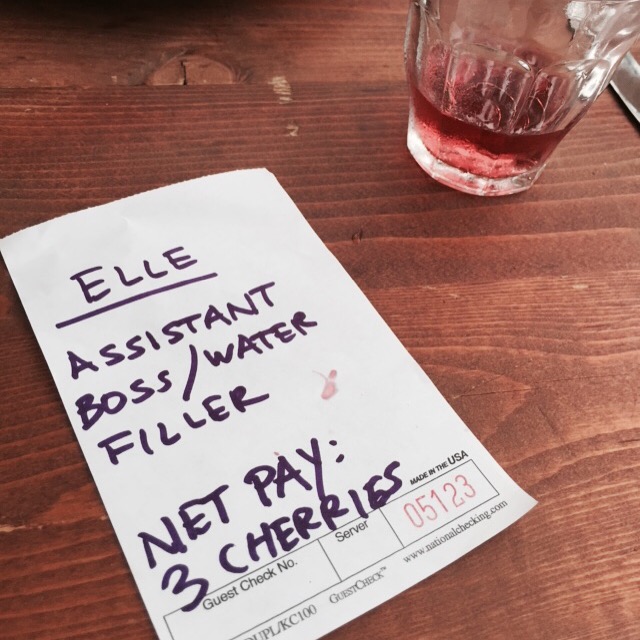 ELLE
ASSISTANT
BOSS/WATER
FILLER
NET PAY:
3 CHERRIES
MADE IN THE USA
Guest Check No.
Server
05123
DUPL/KC100 GUESTCHECK™ www.nationalchecking.com